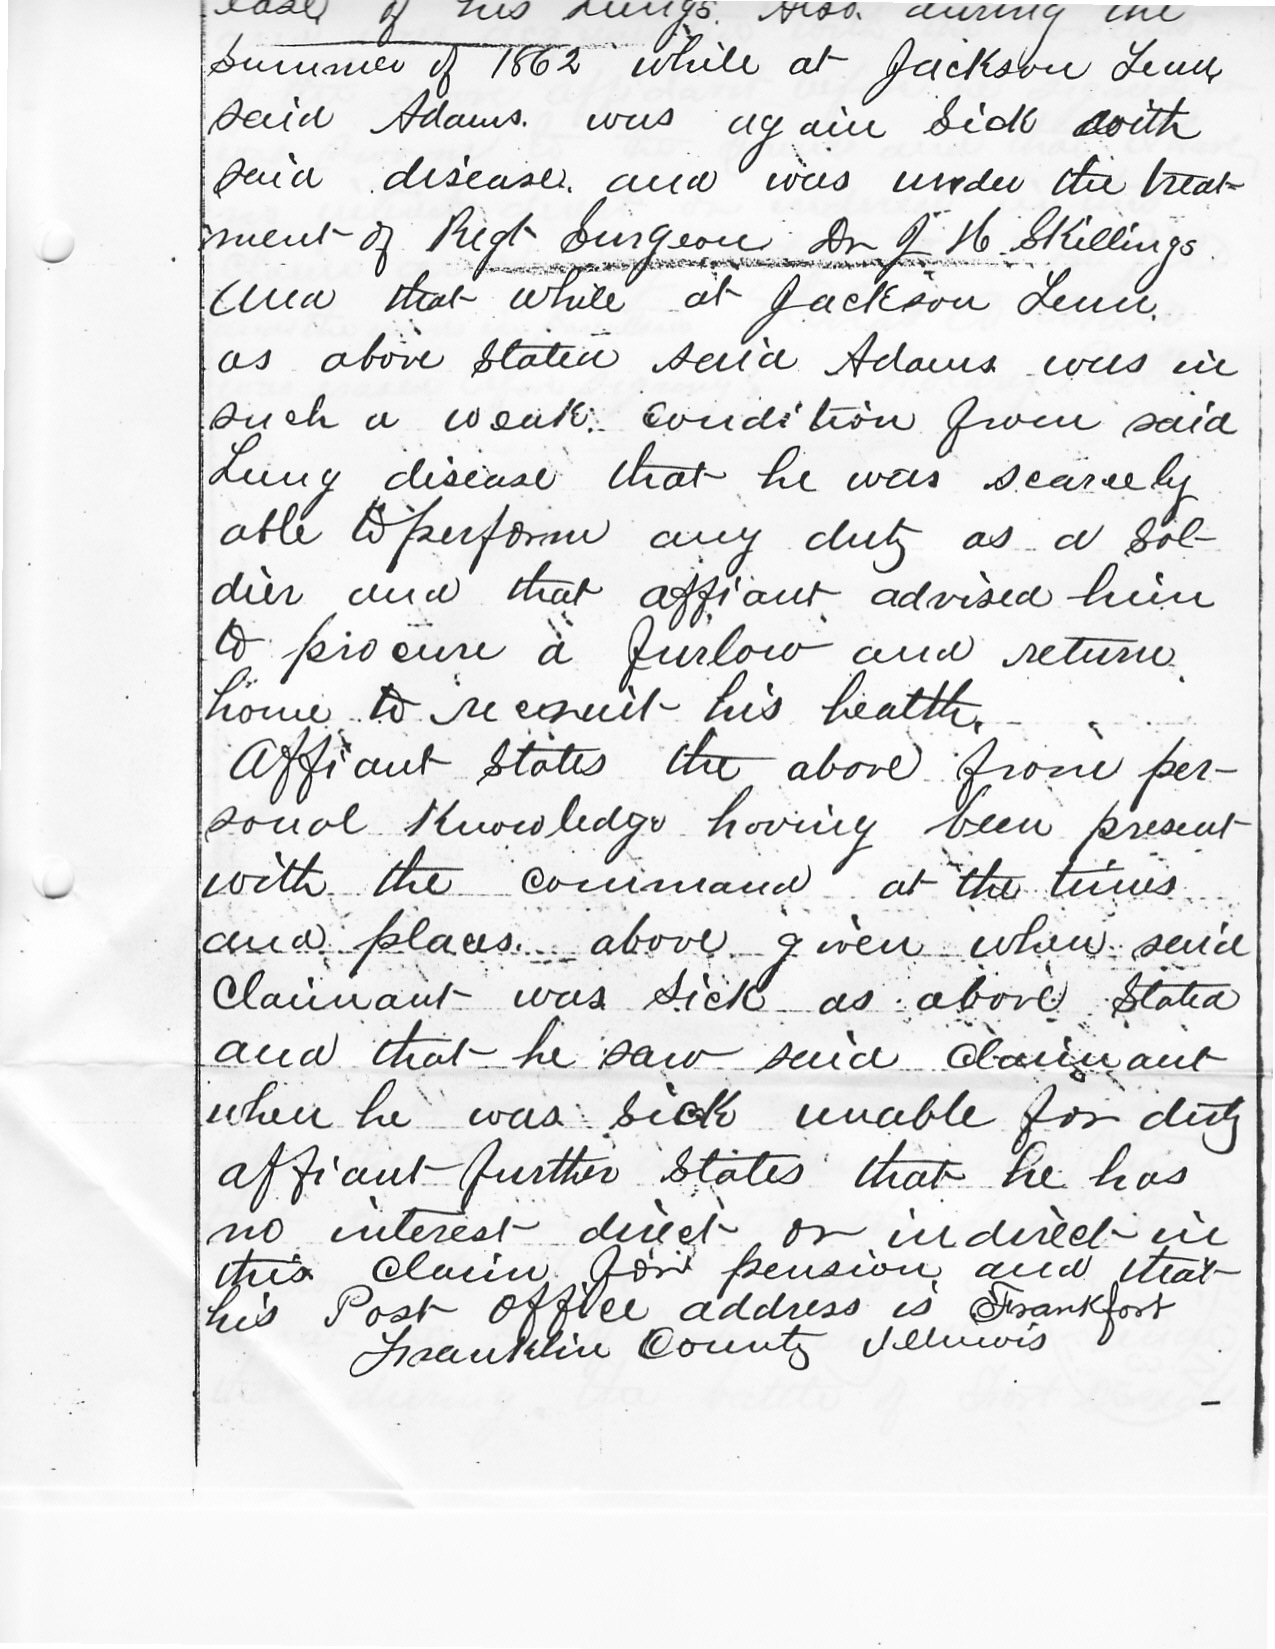 ease of his Lungs. Also. during the
Summer of 1862 while at Jackson Tenn
said Adams. was again Sick with
said disease. and was under the treat-
ment of Regt Surgeon Dr J H Skillings
and that while at Jackson Tenn.
as above Stated said Adams was in
such a weak condition from said
Lung disease that he was scarcely
able to perform any duty as a Sol-
dier and that affiant advised him
to procure a furlow and return
home to recruit his health.
Affiant States the above from per-
sonal Knowledge having been present
with the command at the times
and places. above given when said
Claimant was Sick as above Stated
and that he saw said Claimant
when he was Sick unable for duty
affiant further States that he has
no interest direct or indirect in
this Claim for pension and that
his Post Office address is Frankfort
Franklin County Illinois